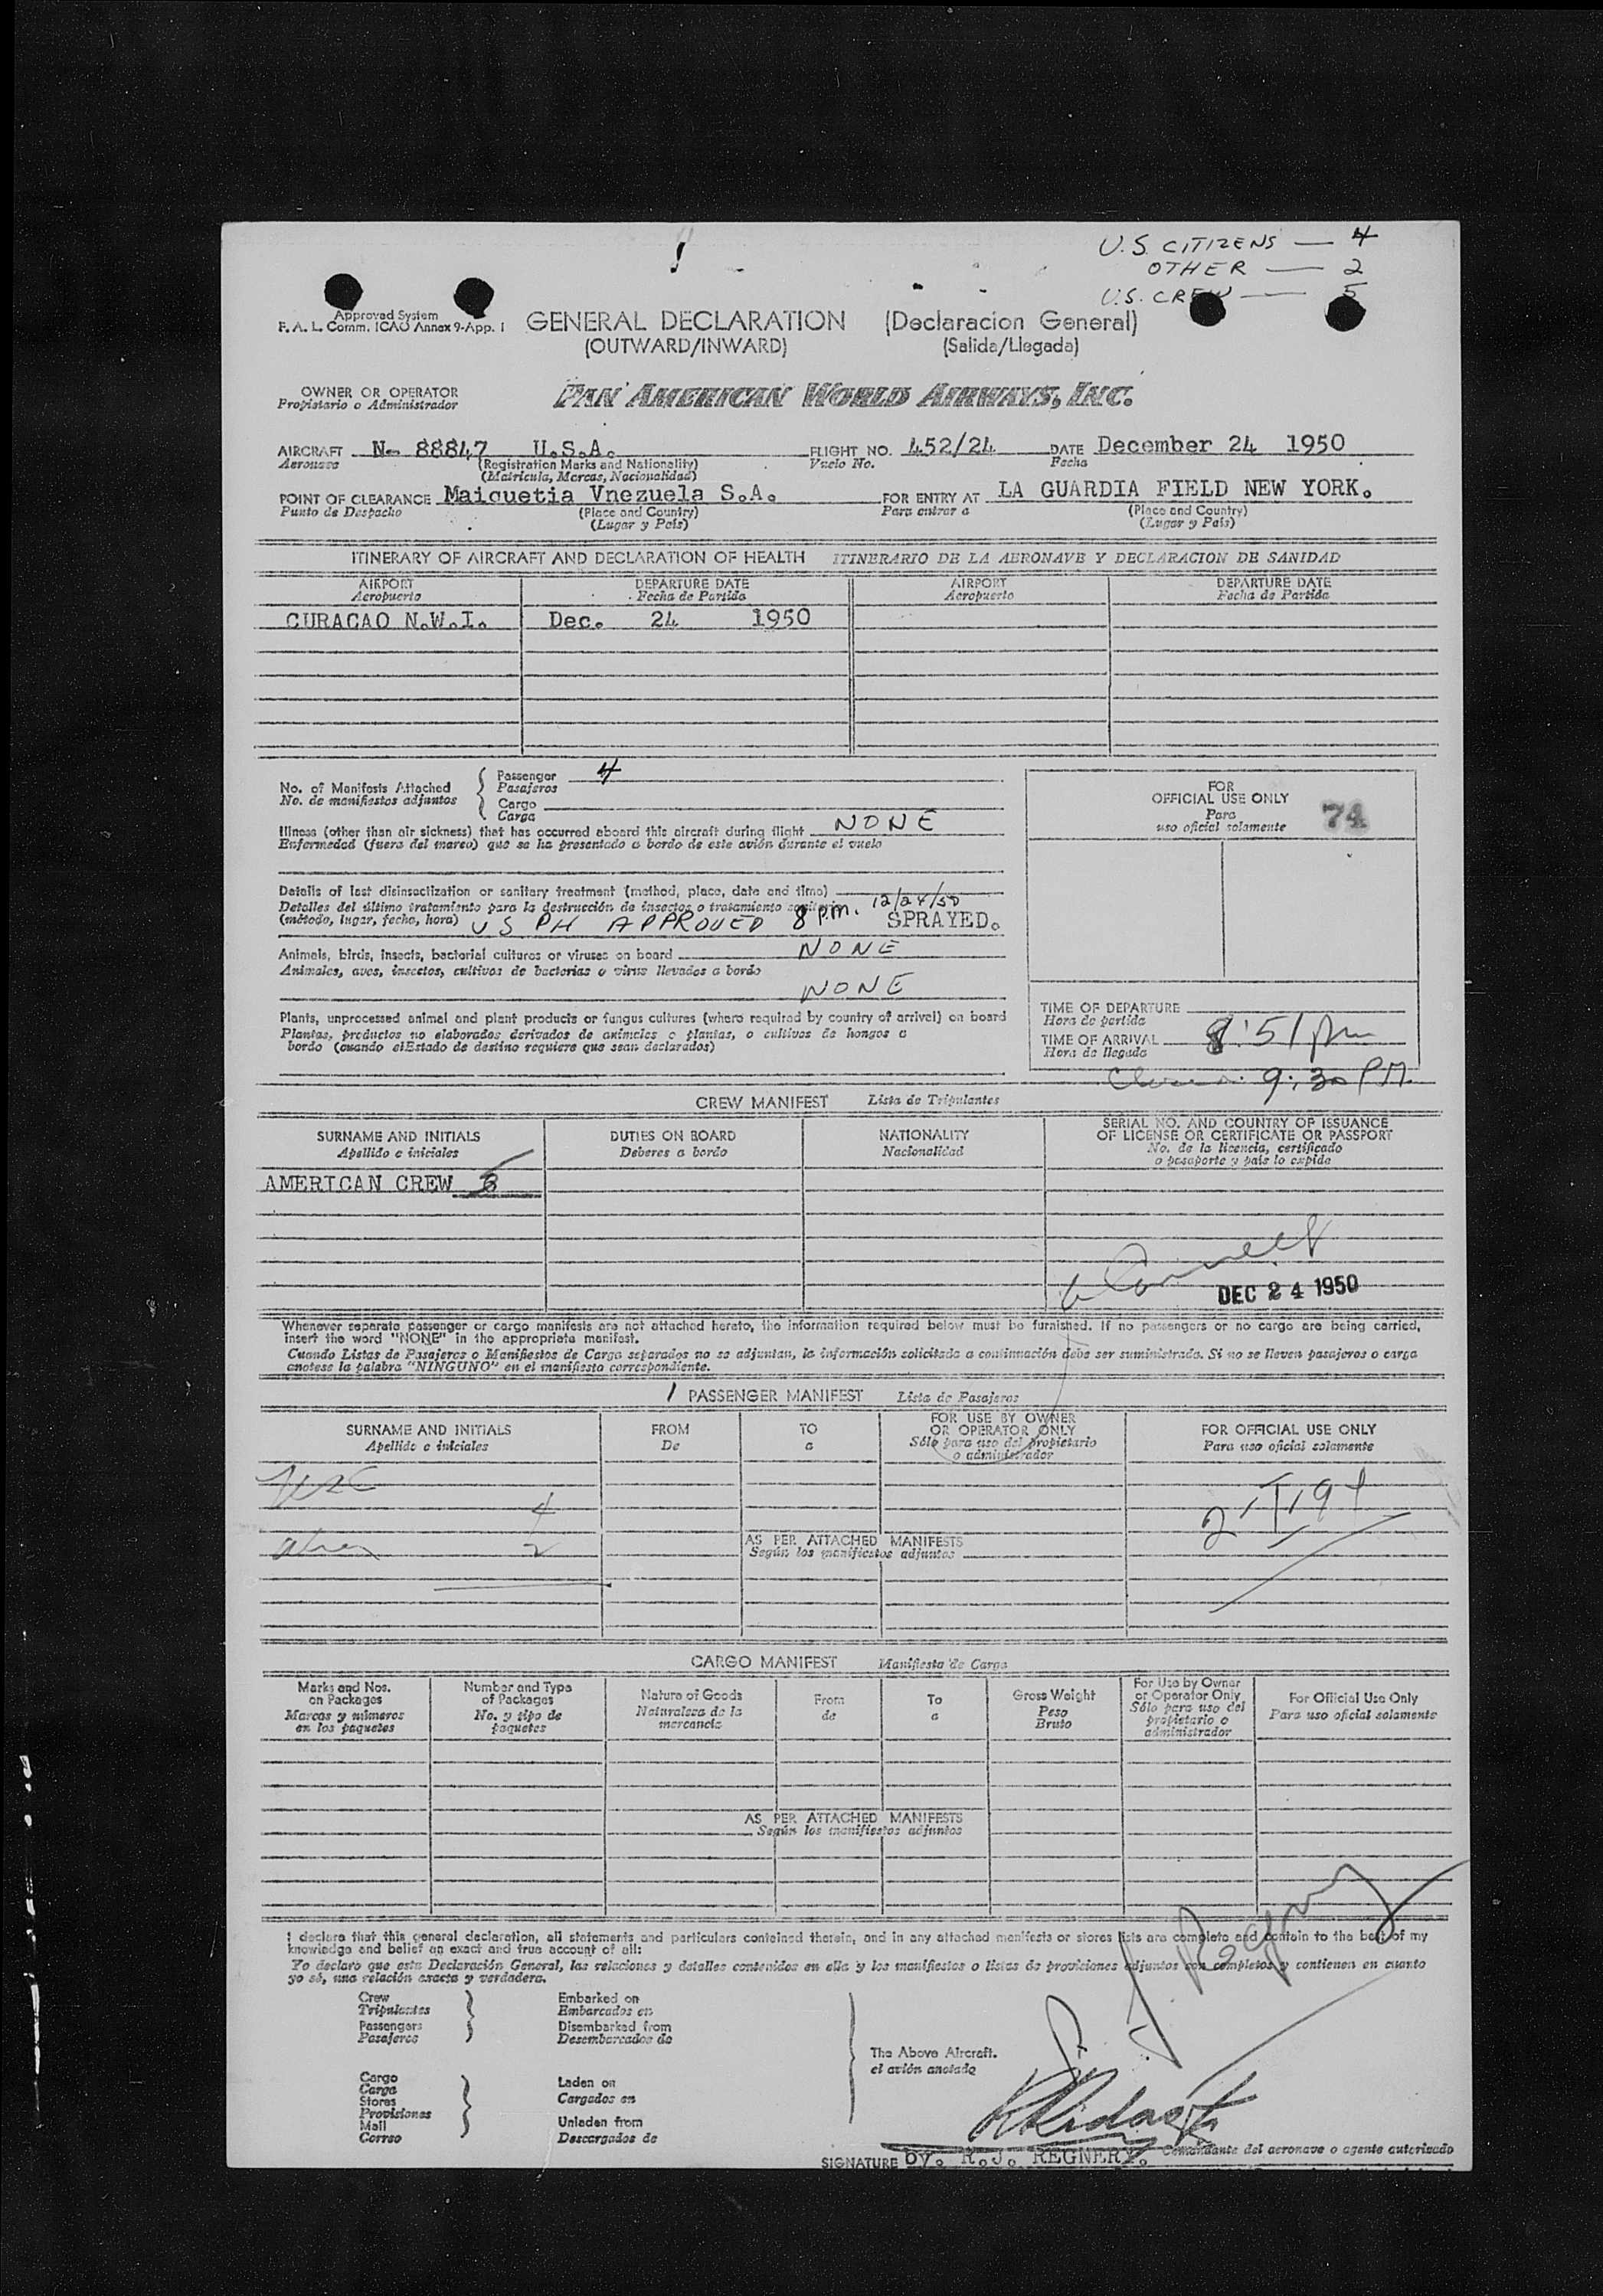 U.S. CITIZENS — 4
OTHER — 2
U.S. CREW — 5
Approved System
F. A. L. Comm. ICAO Annex 9-App. 1
GENERAL DECLARATION (Declaracion General)
(OUTWARD/INWARD) (Salida/Llegada)
OWNER OR OPERATOR
Propietario o Administrador
PAN AMERICAN WORLD AIRWAYS, INC.
AIRCRAFT N- 88847 U.S.A. FLIGHT NO. 452/24 DATE December 24 1950
Aeronave (Registration Marks and Nationality) Vuelo No. Fecha
(Matricula, Marcas, Nacionalidad)
POINT OF CLEARANCE Maiquetia Vnezuela S.A. FOR ENTRY AT LA GUARDIA FIELD NEW YORK.
Punto de Despacho (Place and Country) Para entrar a (Place and Country)
(Lugar y País) (Lugar y País)
ITINERARY OF AIRCRAFT AND DECLARATION OF HEALTH ITINERARIO DE LA AERONAVE Y DECLARACION DE SANIDAD
AIRPORT DEPARTURE DATE AIRPORT DEPARTURE DATE
Aeropuerto Fecha de Partida Aeropuerto Fecha de Partida
CURACAO N.W.I. Dec. 24 1950
No. of Manifests Attached
No. de manifiestos adjuntos
Passenger 4
Pasajeros
Cargo
Carga
FOR
OFFICIAL USE ONLY
Para
uso oficial solamente
74
Illness (other than air sickness) that has occurred aboard this aircraft during flight NONE
Enfermedad (fuera del mareo) que se ha presentado a bordo de este avión durante el vuelo
Details of last disinsectization or sanitary treatment (method, place, date and time)
Detalles del último tratamiento para la destrucción de insectos o tratamiento sanitario
(método, lugar, fecha, hora) US PH APPROVED 8 P.M. 12/24/50 SPRAYED.
Animals, birds, insects, bacterial cultures or viruses on board NONE
Animales, aves, insectos, cultivos de bacterias o virus llevados a bordo
NONE
Plants, unprocessed animal and plant products or fungus cultures (where required by country of arrival) on board
Plantas, productos no elaborados derivados de animales o plantas, o cultivos de hongos a
bordo (cuando el Estado de destino requiere que sean declarados)
TIME OF DEPARTURE
Hora de partida
TIME OF ARRIVAL 8:51 pm
Hora de llegada
9:30 P.M.
CREW MANIFEST Lista de Tripulantes
SURNAME AND INITIALS DUTIES ON BOARD NATIONALITY SERIAL NO. AND COUNTRY OF ISSUANCE
OF LICENSE OR CERTIFICATE OR PASSPORT
Apellido e iniciales Deberes a bordo Nacionalidad No. de la licencia, certificado
o pasaporte y país lo expide
AMERICAN CREW 5
DEC 24 1950
Whenever separate passenger or cargo manifests are not attached hereto, the information required below must be furnished. If no passengers or no cargo are being carried,
insert the word "NONE" in the appropriate manifest.
Cuando Listas de Pasajeros o Manifiestos de Carga separados no se adjuntan, la información solicitada a continuación debe ser suministrada. Si no se lleven pasajeros o carga
anotese la palabra "NINGUNO" en el manifiesto correspondiente.
PASSENGER MANIFEST Lista de Pasajeros
SURNAME AND INITIALS FROM TO FOR USE BY OWNER
OR OPERATOR ONLY FOR OFFICIAL USE ONLY
Apellido e iniciales De a Sólo para uso del propietario
o administrador Para uso oficial solamente
USC 4
alien 2
AS PER ATTACHED MANIFESTS
Según los manifiestos adjuntos
CARGO MANIFEST Manifiesto de Carga
Marks and Nos.
on Packages
Marcas y números
en los paquetes
Number and Type
of Packages
No. y tipo de
paquetes
Nature of Goods
Naturaleza de la
mercancia
From
de
To
a
Gross Weight
Peso
Bruto
For Use by Owner
or Operator Only
Sólo para uso del
propietario o
administrador
For Official Use Only
Para uso oficial solamente
AS PER ATTACHED MANIFESTS
Según los manifiestos adjuntos
I declare that this general declaration, all statements and particulars contained therein, and in any attached manifests or stores lists are complete and contain to the best of my
knowledge and belief an exact and true account of all:
Yo declaro que esta Declaración General, las relaciones y detalles contenidos en ella y los manifiestos o listas de provisiones adjuntos son completos y contienen en cuanto
yo sé, una relación exacta y verdadera.
Crew
Tripulantes
Passengers
Pasajeros
Embarked on
Embarcados en
Disembarked from
Desembarcados de
The Above Aircraft.
el avión anotado
Cargo
Carga
Stores
Provisiones
Mail
Correo
Laden on
Cargados en
Unladen from
Descargados de
SIGNATURE by. R.J. REGNERY. Comandante del aeronave o agente autorizado